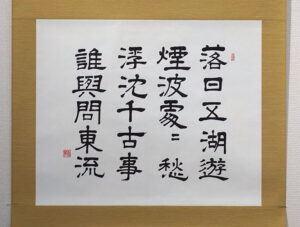 落日五湖遊
煙波處〻愁
浮沈千古事
誰與問東流